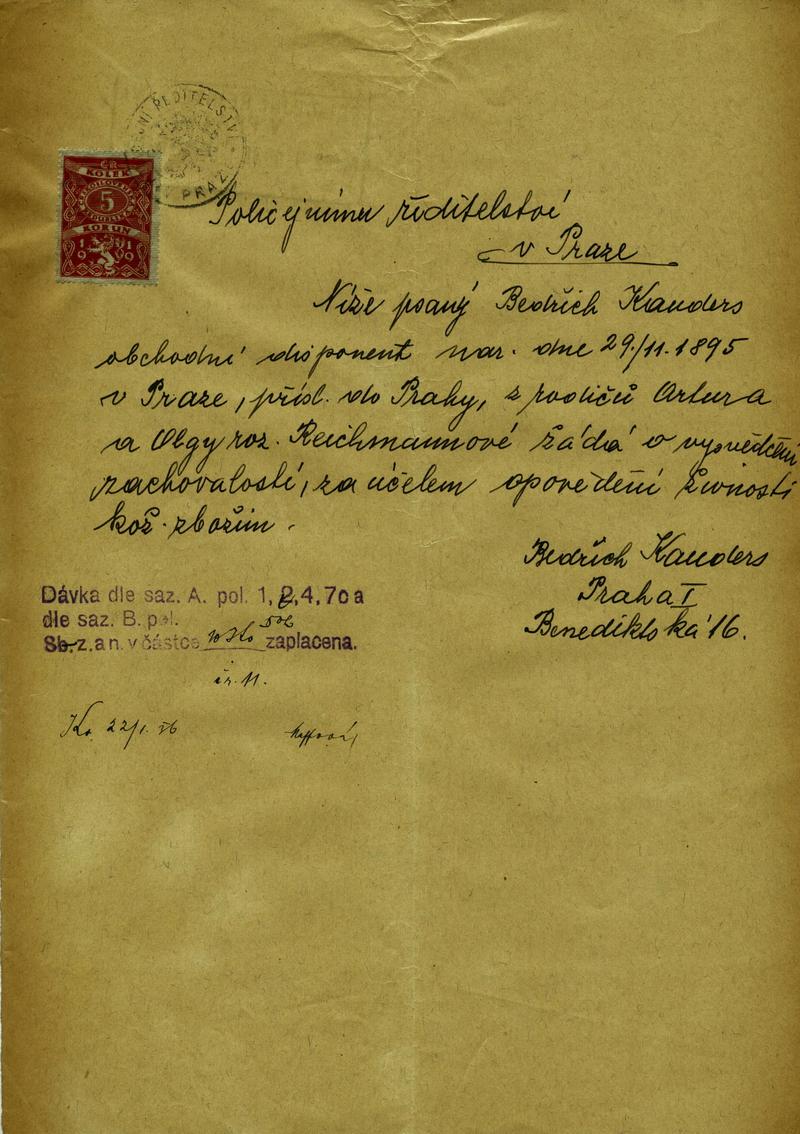 NÍ ŘEDITELSTVÍ
PRAZE
ČR
KOLEK
5
KORUN
1919
Policejnímu ředitelství
v Praze
Níže psaný Bedřich Kauders
obchodní disponent nar. dne 29./11.1895
v Praze, přísl. do Prahy, z rodičů Artura
a Olgy roz. Reichmannové žádá o vysvědčení
zachovalosti, za účelem opovědění živnosti
kož. zbožím.
Bedřich Kauders
Praha I
Benediktská 16.
Dávka dle saz. A. pol. 1, 2, 4, 7c a
dle saz. B. pol.
Sb. z. a n. v částce zaplacena.
Kč 22/1. 26